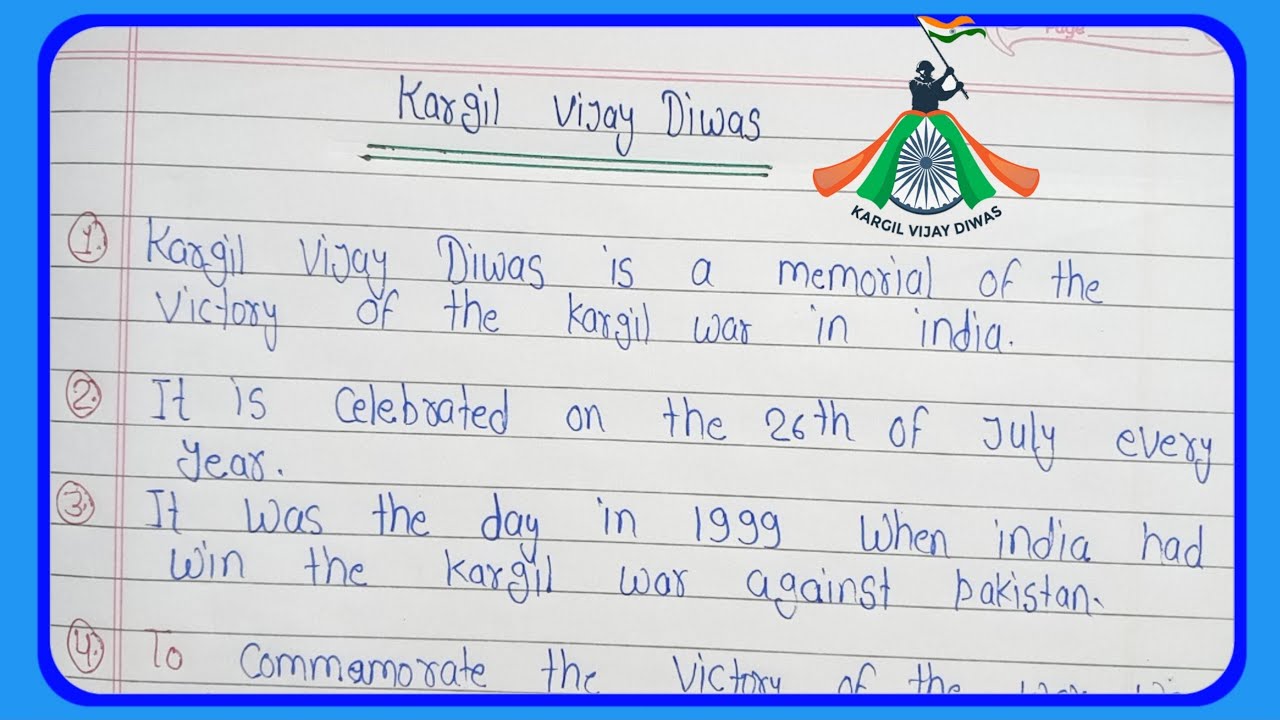 Page
Kargil Vijay Diwas
KARGIL VIJAY DIWAS
1. Kargil Vijay Diwas is a memorial of the
Victory of the kargil war in india.
2. It is Celebrated on the 26th of July every
year.
3. It was the day in 1999 When india had
win the kargil war against pakistan.
4. To Commemorate the Victory of the war